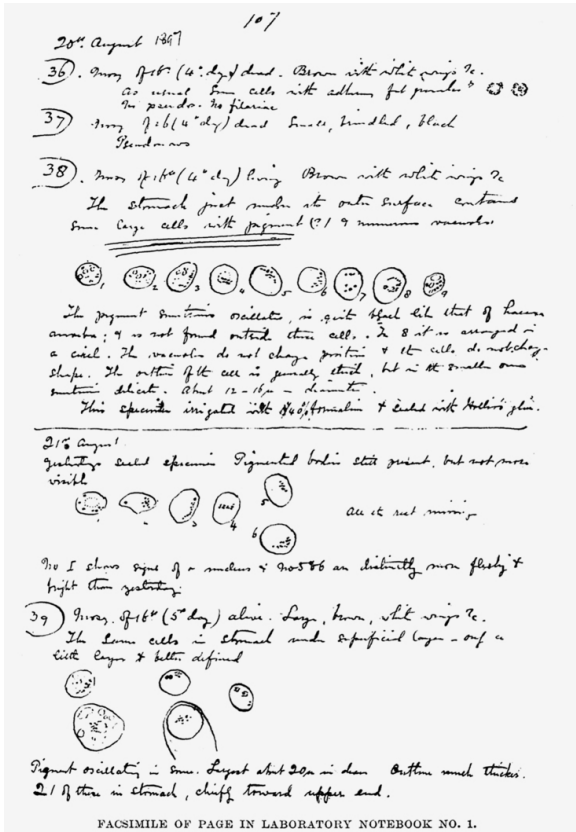 107
20th August 1897
36. Mosq. of 16th (4th day) dead. Brown with white wings &c.
As usual some cells with adhering fat granules
No pseudo. No filariae
37 Mosq. of 16 (4th day) dead Small, brindled, black
38. Mosq. of 16th (4th day) living Brown with white wings &c
The stomach just under its outer surface contains
some large cells with pigment (?) & numerous vacuoles
1 2 3 4 5 6 7 8 9
The pigment sometimes oscillates, is quite black like that of haem
amoeba; & is not found outside these cells. In 8 it is arranged in
a circle. The vacuoles do not change position & the cells do not change
shape. The outline of the cell is generally thick, but in the smaller ones
sometimes delicate. About 12-16µ in diameter.
This specimen irrigated with 40% formalin & sealed with Hollis's glue.
21st August
Yesterday's sealed specimen Pigmented bodies still present, but not more
visible
3 4 5 6
All the rest missing
No 1 shows signs of a nucleus & No 5 & 6 are distinctly more fleshy &
bright than yesterday.
39 Mosq. of 16th (5th day) alive. Large, brown, white wings &c.
The same cells in stomach under superficial layer - only a
little larger & better defined
Pigment oscillating in some. Largest about 20µ in diam Outline much thicker.
21 of these in stomach, chiefly toward upper end.
FACSIMILE OF PAGE IN LABORATORY NOTEBOOK NO. 1.